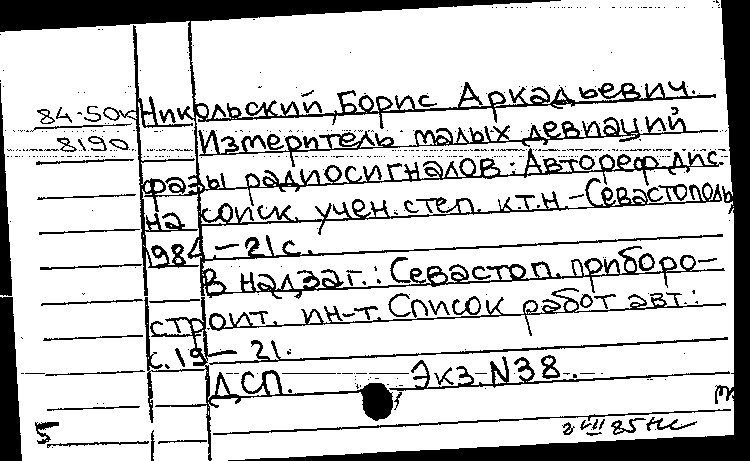 84-50к Никольский, Борис Аркадьевич.
8190 Измеритель малых девиаций
фазы радиосигналов: Автореф. дис.
на соиск. учен. степ. к.т.н. - Севастополь,
1984. - 21 с.
В надзаг.: Севастоп. приборо-
строит. ин-т. Список работ авт.:
с. 19 - 21.
ДСП. Экз. N38.
5